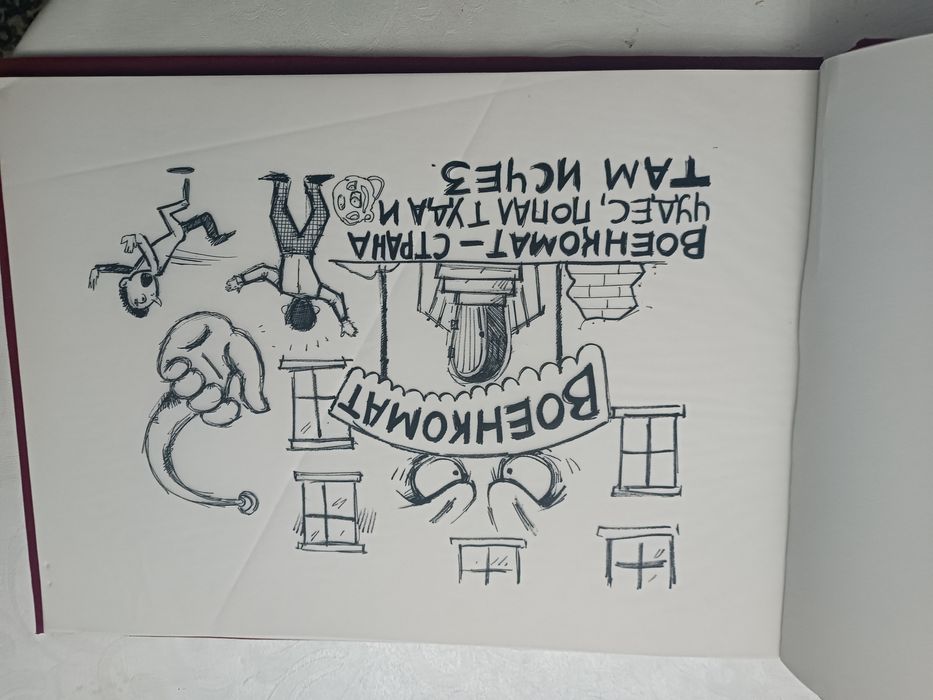 ВОЕНКОМАТ
ВОЕНКОМАТ – СТРАНА
ЧУДЕС, ПОПАЛ ТУДА И
ТАМ ИСЧЕЗ.